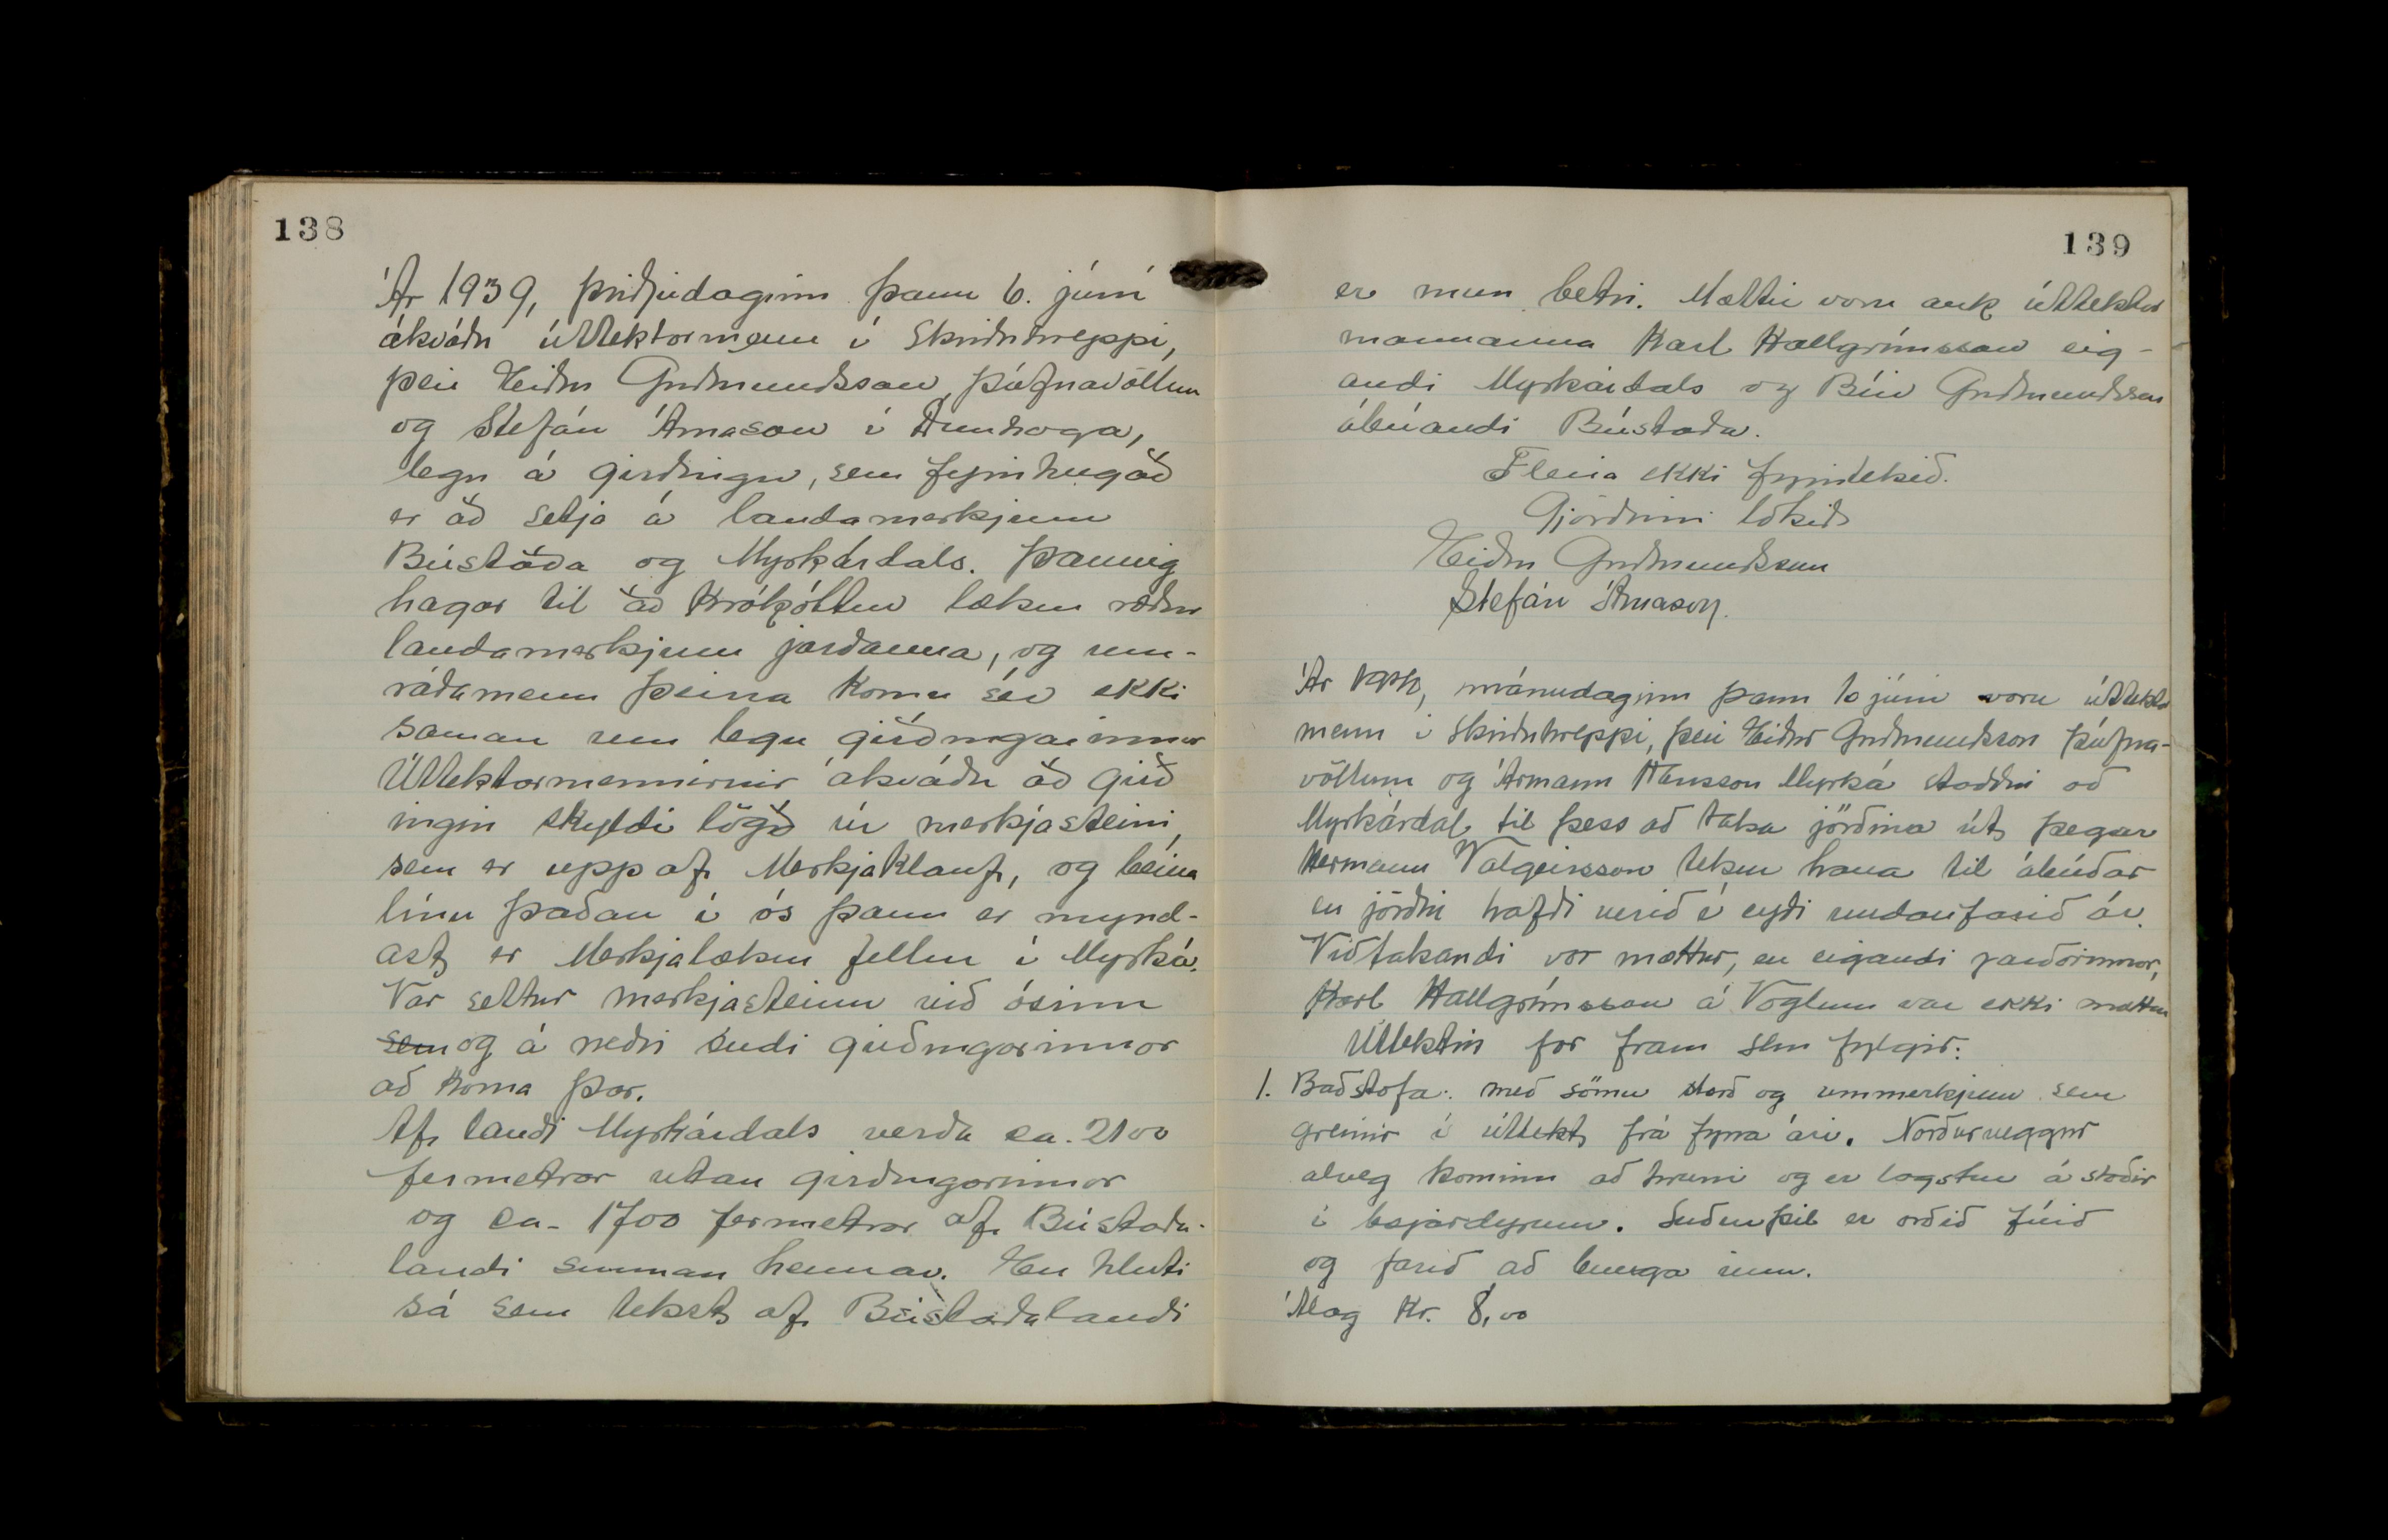 138
Ár 1939, þriðjudaginn þann 6. júní
ákváðu úttektarmenn í Skriðuhreppi,
þeir Eiður Guðmundsson, Þúfnavöllum
og Stefán Árnason í Dunhaga,
legu á girðingu, sem fyrirhugað
er að setja á landamerkjum
Bústaða og Myrkárdals. Þannig
hagar til að Krókóttur lækur ræður
landamerkjum jarðanna, og um-
ráðamenn þeirra komu sér ekki
saman um legu girðingarinnar
Úttektarmennirnir ákváðu að girð
ingin skyldi lögð úr merkjasteini,
sem er upp af Merkjaklauf, og beina
línu þaðan í ós þann er mynd-
ast er Merkjalækur fellur í Myrká.
Var settur merkjasteinn við ósinn
sem og á neðri endi girðingarinnar
að koma þar.
Af landi Myrkárdals verða ca. 2100
fermetrar utan girðingarinnar
og ca. 1700 fermetrar af Bústaða-
landi sunnan hennar. En hluti
sá sem tekst af Bústaðalandi
139
er mun betri. Mættir voru auk úttektar
mannanna Karl Hallgrímsson eig-
andi Myrkárdals og Búi Guðmundsson
ábúandi Bústaða.
Fleira ekki fyrirtekið.
Gjörðinni lokið
Eiður Guðmundsson
Stefán Árnason.
Ár, mánudaginn þann 10 júní voru úttektar
menn í Skriðuhreppi, þeir Eiður Guðmundsson Þúfna-
völlum og Ármann Hansson Myrká staddir að
Myrkárdal til þess að taka jörðina út þegar
Hermann Valgeirsson tekur hana til ábúðar
en jörðin hafði verið í eyði undanfarið ár.
Viðtakandi var mættur, en eigandi jarðarinnar,
Karl Hallgrímsson á Voglum var ekki mættur
Úttektin fór fram sem fylgir:
1. Baðstofa: með sömu stærð og ummerkjum sem
greinir í úttekt frá fyrra ári. Norðurveggur
alveg kominn að hruni og er lagstur á stoðir
í bæjardyrum. Suðurþil er orðið fúið
og farið að bunga inn.
Álag Kr. 8,00